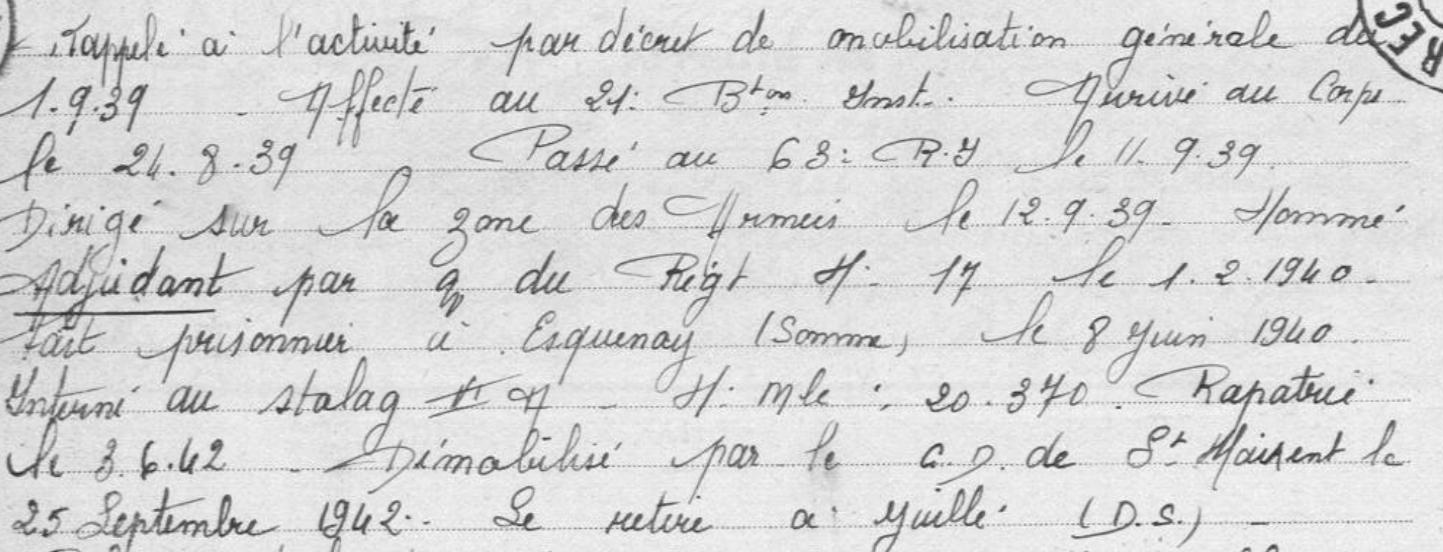 Rappelé à l'activité par décret de mobilisation générale du
1.9.39 - Affecté au 21e Bton Inst. Arrivé au Corps
le 24.8.39 Passé au 63e R.I le 11.9.39.
Dirigé sur la zone des Armées le 12.9.39 - Nommé
Adjudant par du Régt N° 17 le 1.2.1940.
Fait prisonnier à Esquenay (Somme) le 8 Juin 1940.
Interné au stalag A - N° Mle : 20.370. Rapatrié
le 3.6.42 - Démobilisé par le C.D. de St Maixent le
25 Septembre 1942. Se retire à Juillé (D.S.) -
REC